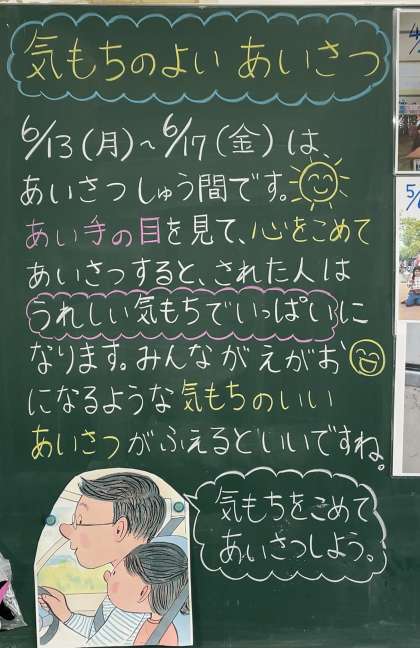 気もちのよい あいさつ
6/13(月)～6/17(金)は、
あいさつしゅう間です。
あい手の目を見て、心をこめて
あいさつすると、された人は
うれしい気もちでいっぱいに
なります。みんながえがお
になるような気もちのいい
あいさつがふえるといいですね。
気もちをこめて
あいさつしよう。